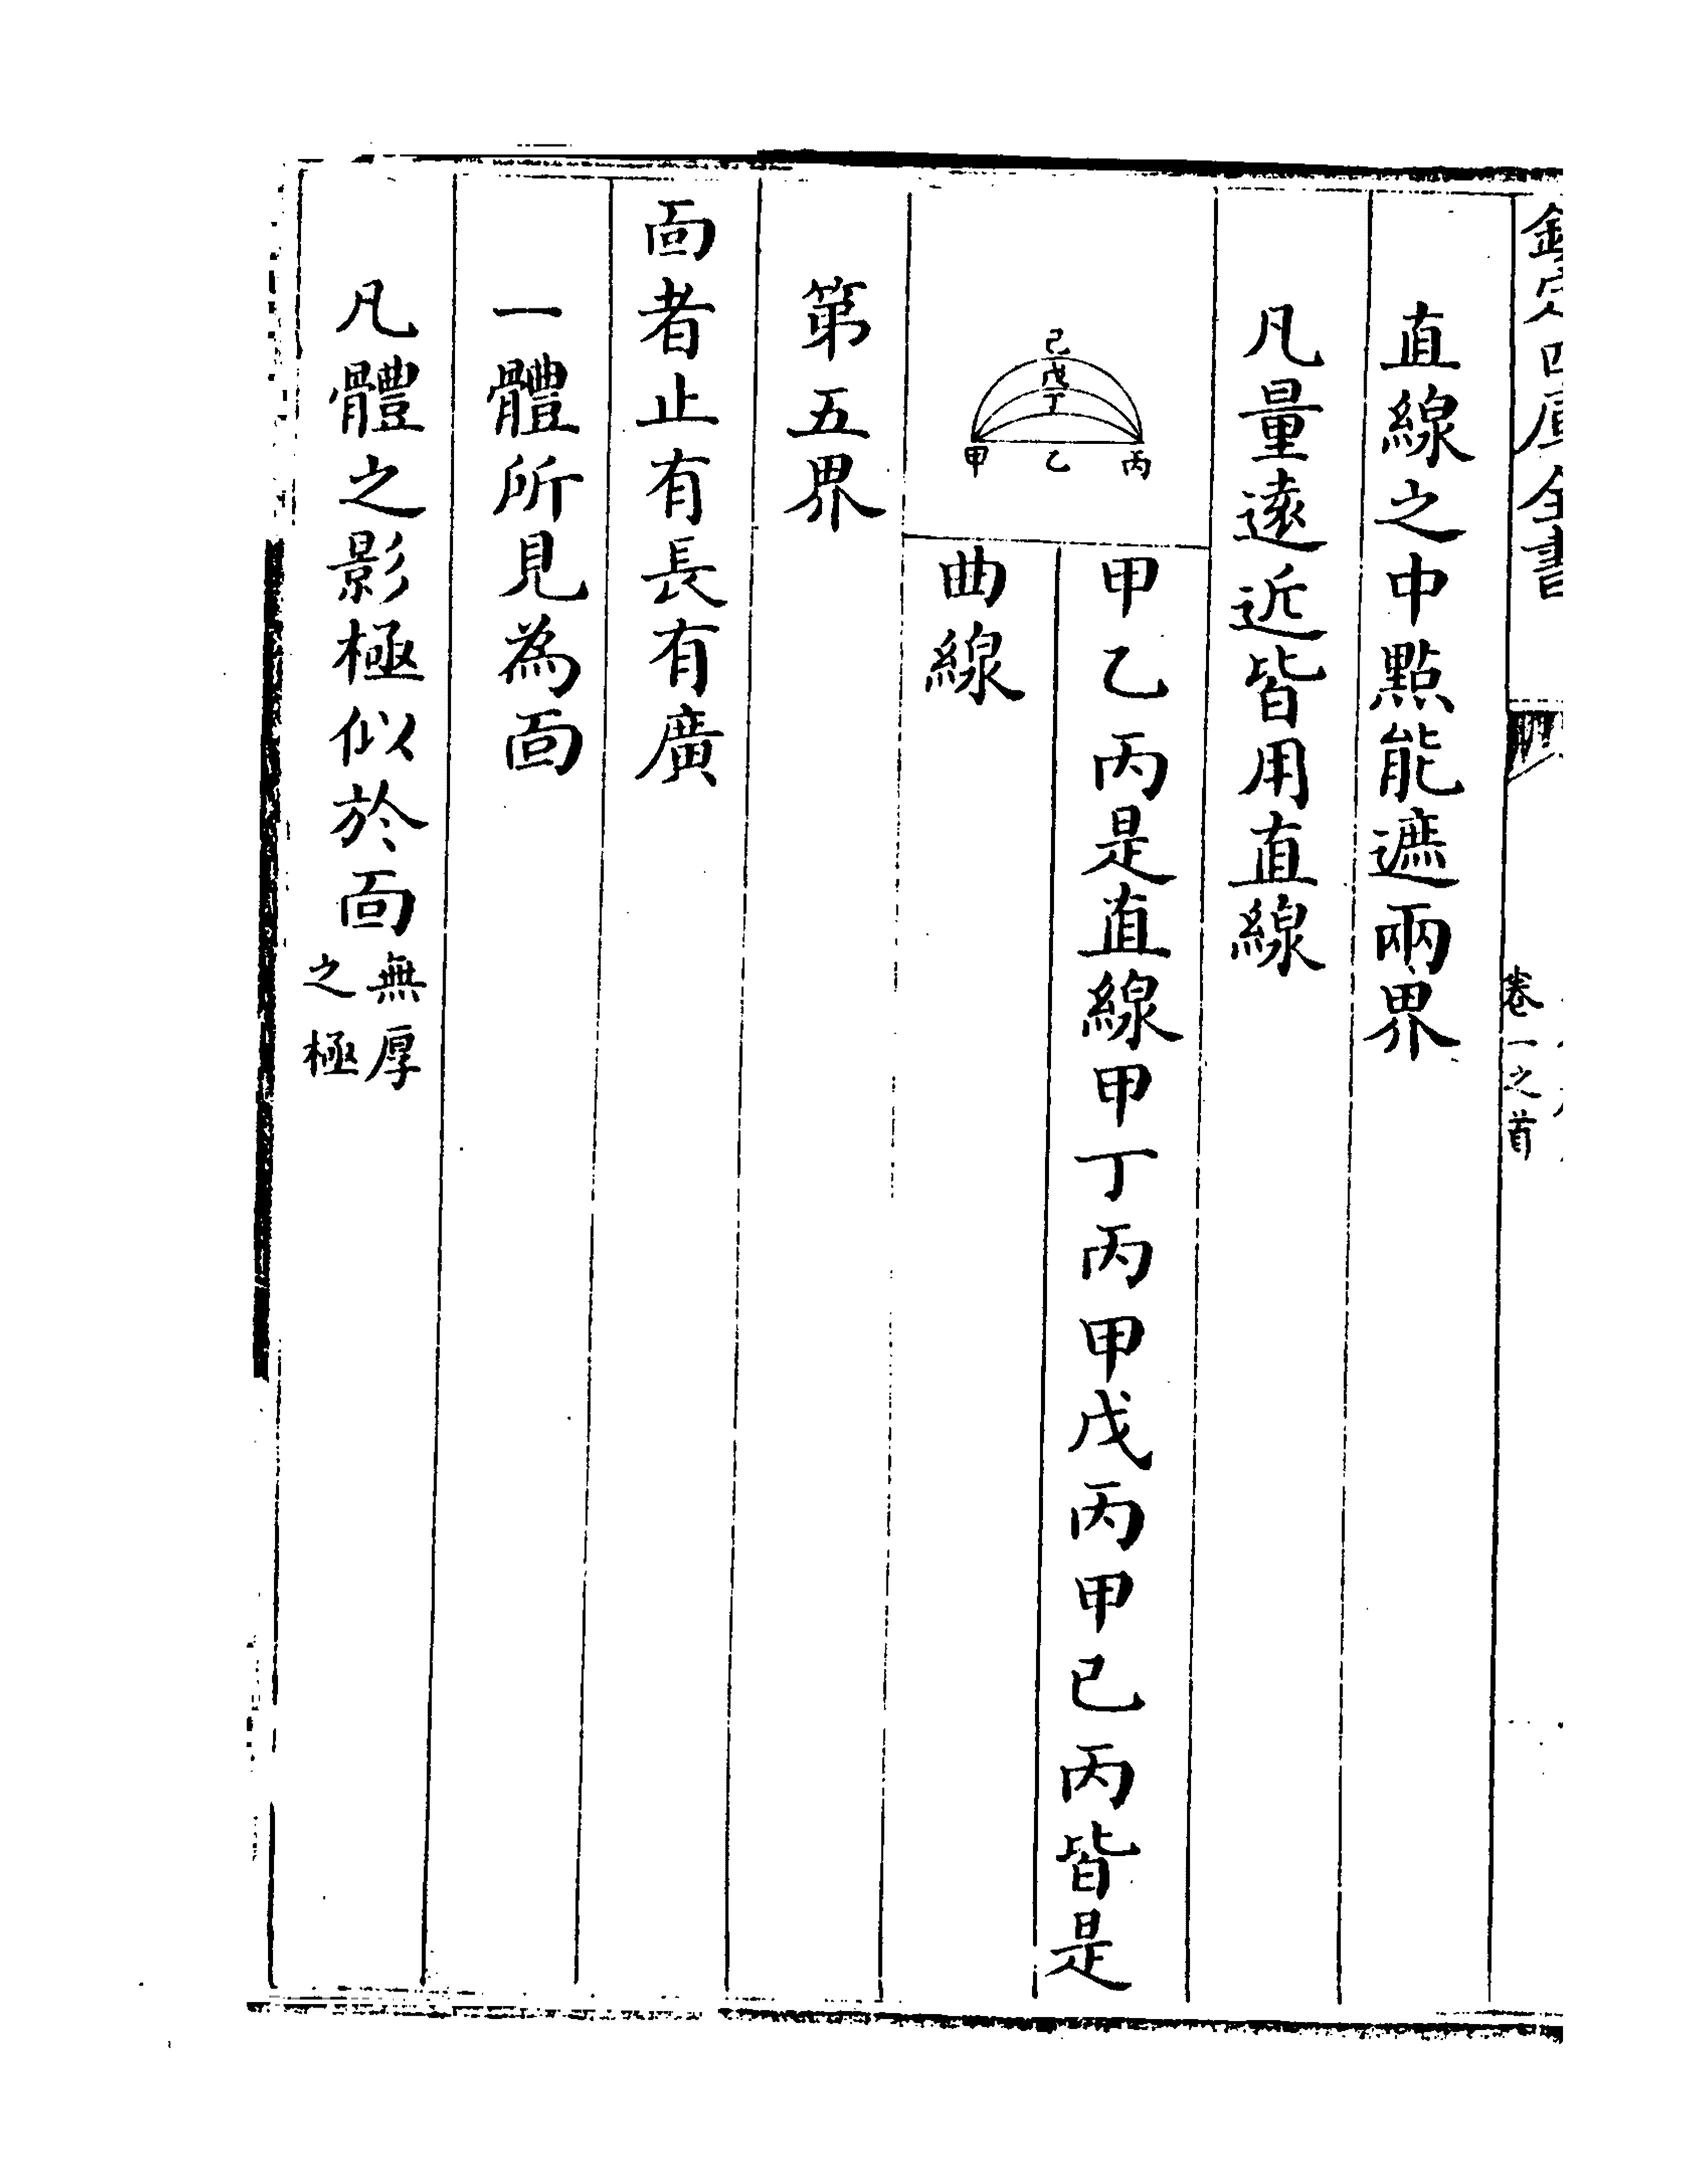 欽定四庫全書
卷一之首
直線之中點能遮兩界
凡量逺近皆用直線
己
戊
丁
甲 乙 丙
甲乙丙是直線甲丁丙甲戊丙甲已丙皆是
曲線
第五界
靣者止有長有廣
一體所見為靣
凡體之影極似於靣無厚
之極